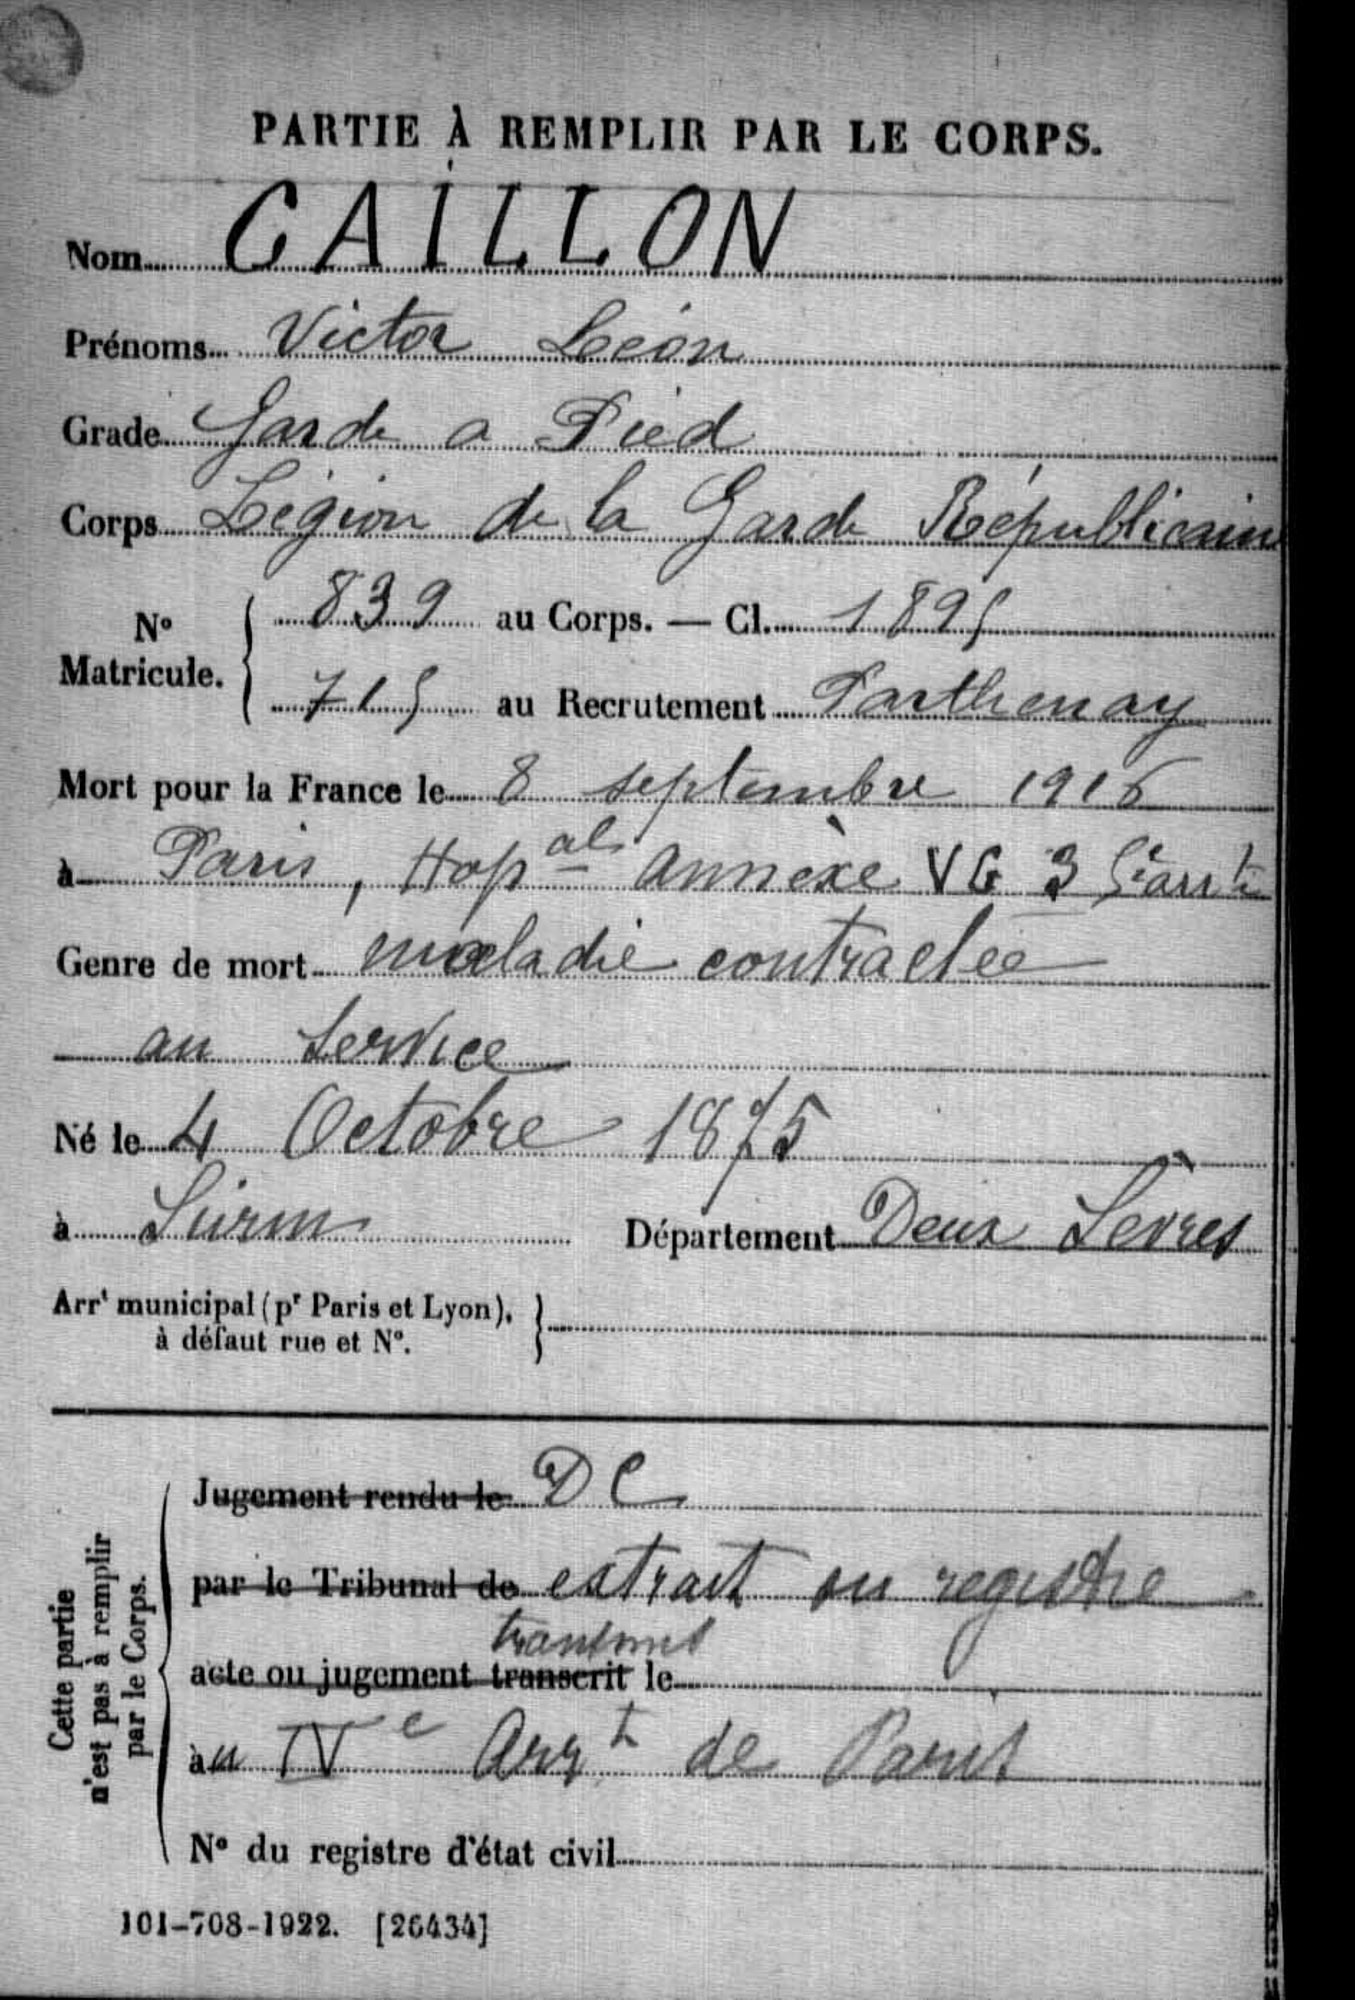 PARTIE À REMPLIR PAR LE CORPS.
Nom CAILLON
Prénoms Victor Léon
Grade Garde a Pied
Corps Légion de la Garde Républicain
N° Matricule. 839 au Corps. — Cl. 1895
715 au Recrutement Parthenay
Mort pour la France le 8 septembre 1916
à Paris, Hop al annèxe VG 3 5e arrt
Genre de mort maladie contractée
au service
Né le 4 Octobre 1875
à Département Deux Sèvres
Arrt municipal (pr Paris et Lyon),
à défaut rue et N°.
Cette partie
n'est pas à remplir
par le Corps.
Jugement rendu le DC
par le Tribunal de extrait au registre
transmis
acte ou jugement transcrit le
àu IVe Arrt de Paris
N° du registre d'état civil
101-708-1922. [26434]